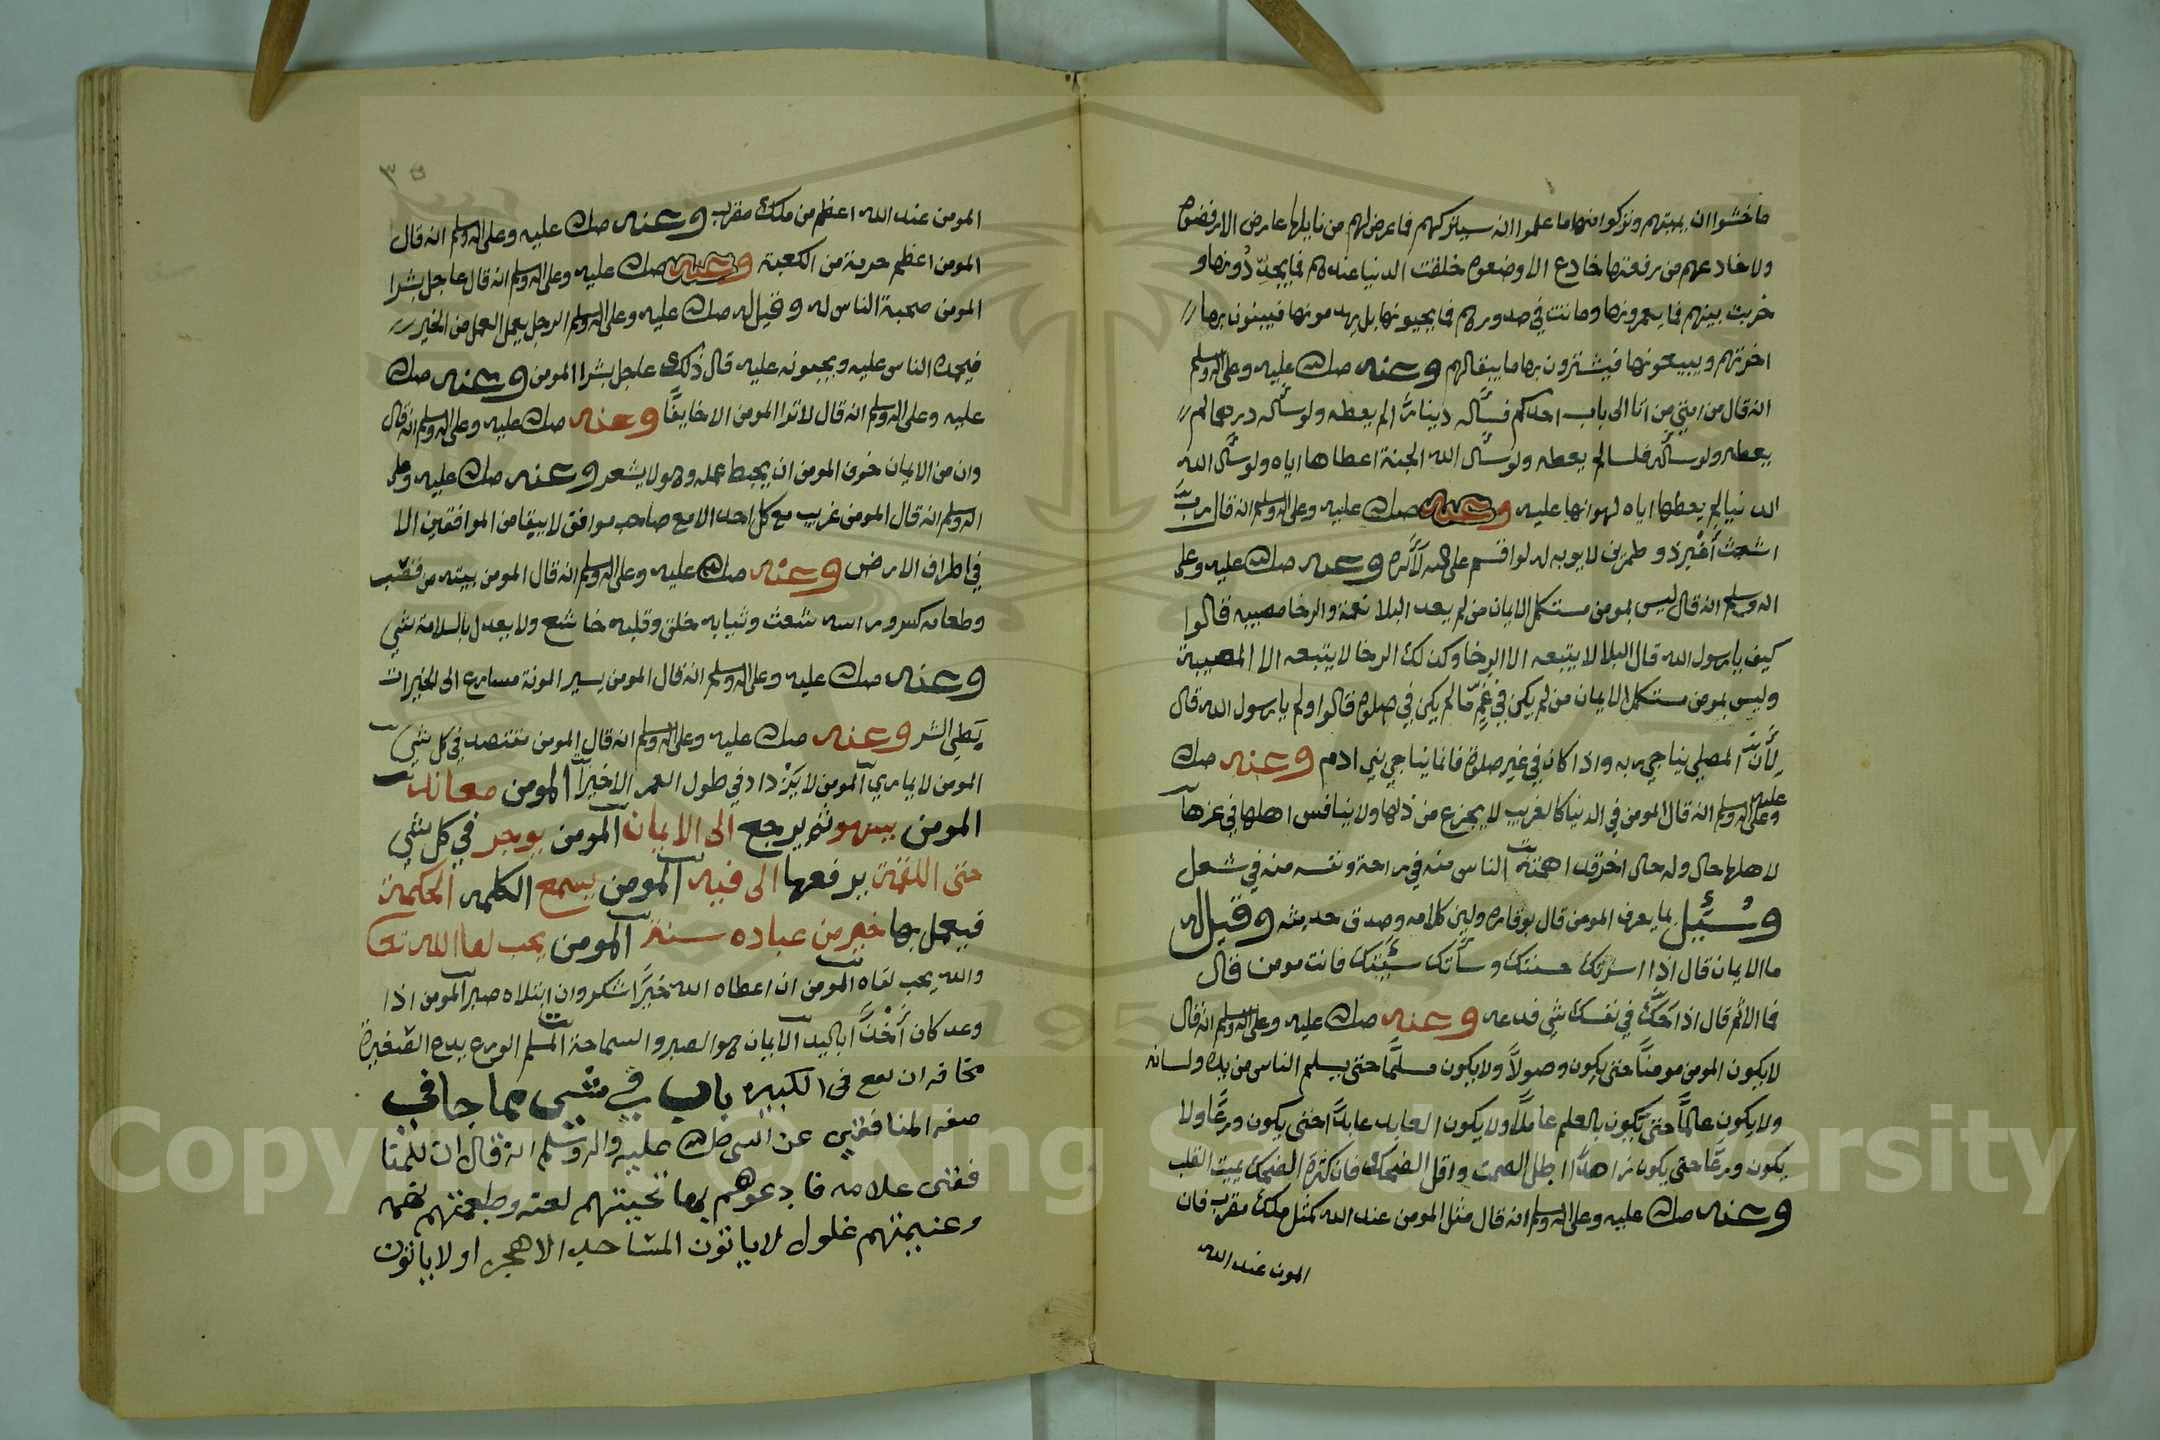 ما خشوا ان يميتهم وتركوا منها ما علموا انه سيتركهم فما عرض لهم من نايلها عارض الا رفضوه
ولا خادعهم من رفعتها خادع الا وضعوه خلقت الدنيا عندهم فما يجددونها و
خربت بينهم فما يعمرونها وماتت في صدورهم فما يحيونها بل يهدمونها فيبنون بها
اخرتهم ويبيعونها فيشترون بها ما يبقا لهم وعنه صلى الله عليه وعلى اله وسلم
انه قال من امتي من اتا الى باب احدكم فسأله دينارًا لم يعطه ولو سأله درهما لم
يعطه ولو سأله فلسا لم يعطه ولو سأل الله الجنة اعطاها اياه ولو سأل الله
الدنيا لم يعطها اياه لهوانها عليه وعنه صلى الله عليه وعلى اله وسلم انه قال ربّ
اشعث أغبر ذو طمرين لا يوبه له لو اقسم على الله لأبره وعنه صلى الله عليه وعلى
اله وسلم انه قال ليس بمومن مستكمل الايمان من لم يعد البلا نعمة والرخا مصيبه قالوا
كيف يا رسول الله قال البلا لا يتبعه الا الرخا وكذلك الرخا لا يتبعه الا المصيبة
وليس بمومن مستكمل الايمان من لم يكن في غمّ ما لم يكن في صلوة قالوا ولم يا رسول الله قال
لأن المصلي يناجي ربه واذا كان في غير صلوة فانما يناجي بني ادم وعنه صلى الله
عليه وعلى اله وسلم انه قال المومن في الدنيا كالغريب لا يجزع من ذلها ولا ينافس اهلها في عزها
لاهلها حال وله حال اخر قد اهمته الناس منه في راحة ونفسه منه في شغل
وسُئِل بما يعرف المومن قال بوقاره ولين كلامه وصدق حديثه وقيل له
ما الايمان قال اذا اسرتك حسنتك وسأتك سيئتك فانت مومن قال
فما الاثم قال اذا حكّ في نفسك شي فدعه وعنه صلى الله عليه وعلى اله وسلم انه قال
لا يكون المومن مومنًا حتى يكون وصولًا ولا يكون مسلمًا حتى يسلم الناس من يده ولسانه
ولا يكون عالمًا حتى يكون بالعلم عاملًا ولا يكون العابد عابدًا حتى يكون ورعًا ولا
يكون ورعًا حتى يكون زاهدًا اطل الصمت واقل الضحك فان كثرة الضحك يميت القلب
وعنه صلى الله عليه وعلى اله وسلم انه قال مثل المومن عند الله كمثل ملك مقرب فان
المومن عند الله
٣٥
المومن عند الله اعظم من ملك مقرب وعنه صلى الله عليه وعلى اله وسلم انه قال
المومن اعظم حرمة من الكعبة وعنه صلى الله عليه وعلى اله وسلم انه قال عاجل بشرا
المومن صحبة الناس له وقيل له صلى الله عليه وعلى اله وسلم الرجل يعمل العمل من الخير
فيحمده الناس عليه ويحبونه عليه قال ذلك عاجل بشرا المومن وعنه صلى الله
عليه وعلى اله وسلم انه قال لا ترا المومن الا خايفًا وعنه صلى الله عليه وعلى اله وسلم انه قال
وان من الايمان خوف المومن ان يحبط عمله وهو لا يشعر وعنه صلى الله عليه وعلى
اله وسلم انه قال المومن غريب مع كل احد الا مع صاحب موافق لا يبقا من الموافقين الا
في اطراف الارض وعنه صلى الله عليه وعلى اله وسلم انه قال المومن بيته من قصب
وطعامه كسر وراسه شعث وثيابه خلق وقلبه خاشع ولا يعدل بالسلامة شي
وعنه صلى الله عليه وعلى اله وسلم انه قال المومن يسير المونة مسارع الى الخيرات
بطي الشر وعنه صلى الله عليه وعلى اله وسلم انه قال المومن مقتصد في كل شي
المومن لا يماري المومن لا يزداد في طول العمر الا خيرًا المومن معانه
المومن يسهو ثم يرجع الى الايمان المومن يوجر في كل شي
حتى اللقمة يرفعها الى فيه المومن يسمع الكلمه الحكمة
فيعمل بها خير من عباده سنة المومن يحب لقا الله تعا
والله يحب لقاه المومن ان اعطاه الله خيرًا شكر وان ابتلاه صبر المومن اذا
وعد كان أخذًا باليد الايمان هو الصبر والسماحة المسلم الورع يدع الصغيرة
مخافه ان يقع في الكبيره باب في شي مما جا في
صفه المنافقين عن النبي صلى الله عليه واله وسلم انه قال ان للمنا
فقين علامه فادعوهم بها تحيتهم لعنه وطعمتهم نهمه
وغنيمتهم غلول لا ياتون المساجد الا هجرا ولا ياتون
Copyright © King Saud University
195